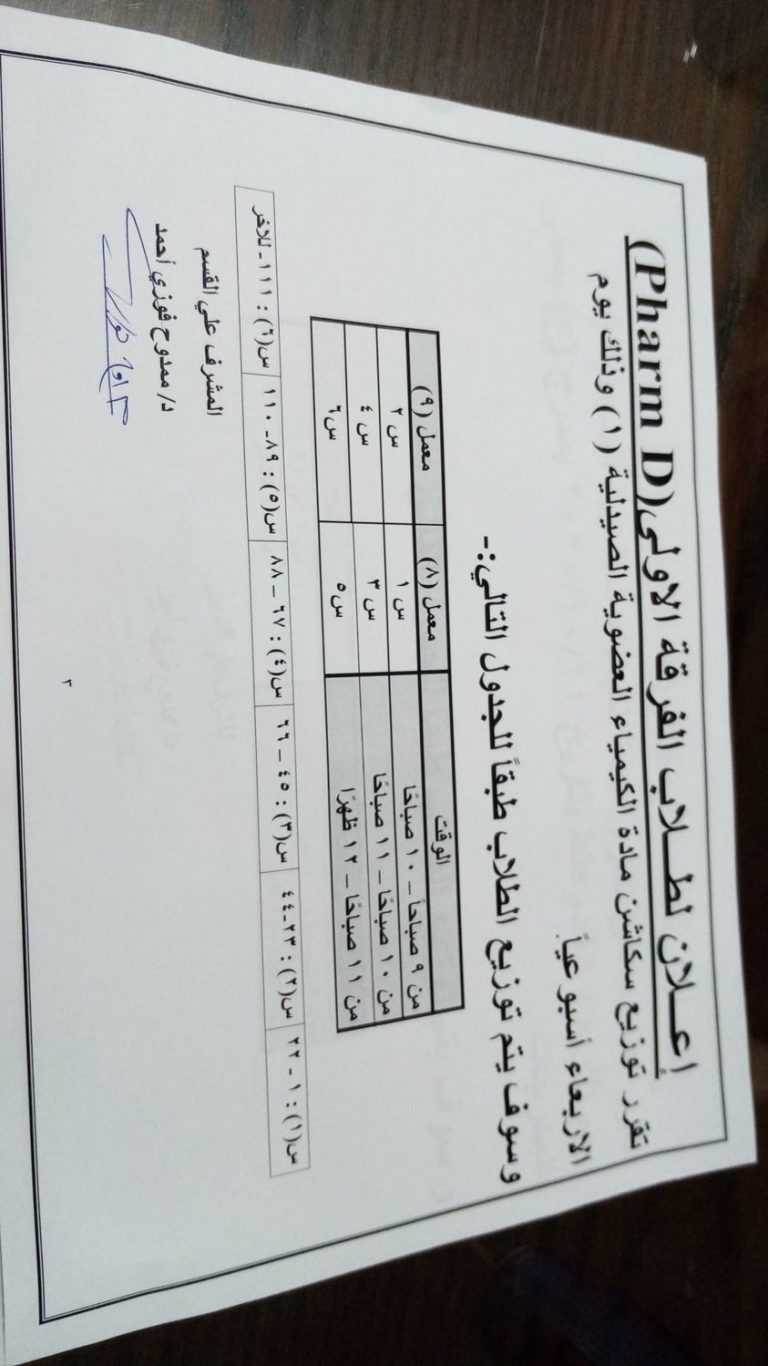 إعـلان لطـلاب الفرقة الاولى(Pharm D)
تقرر توزيع سكاشن مادة الكيمياء العضوية الصيدلية (١) وذلك يوم
الاربعاء أسبوعياً.
وسوف يتم توزيع الطلاب طبقاً للجدول التالي:-
الوقت معمل (٨) معمل (٩)
من ٩ صباحاً – ١٠ صباحًا س ١ س ٢
من ١٠ صباحًا – ١١ صباحًا س ٣ س ٤
من ١١ صباحًا – ١٢ ظهرًا س ٥ س ٦
س(١) : ١ - ٢٢ س(٢) : ٢٣-٤٤ س(٣) : ٤٥ – ٦٦ س(٤) : ٦٧ – ٨٨ س(٥) : ٨٩- ١١٠ س(٦) : ١١١- للاخر
المشرف علي القسم
د/ ممدوح فوزي أحمد
٢